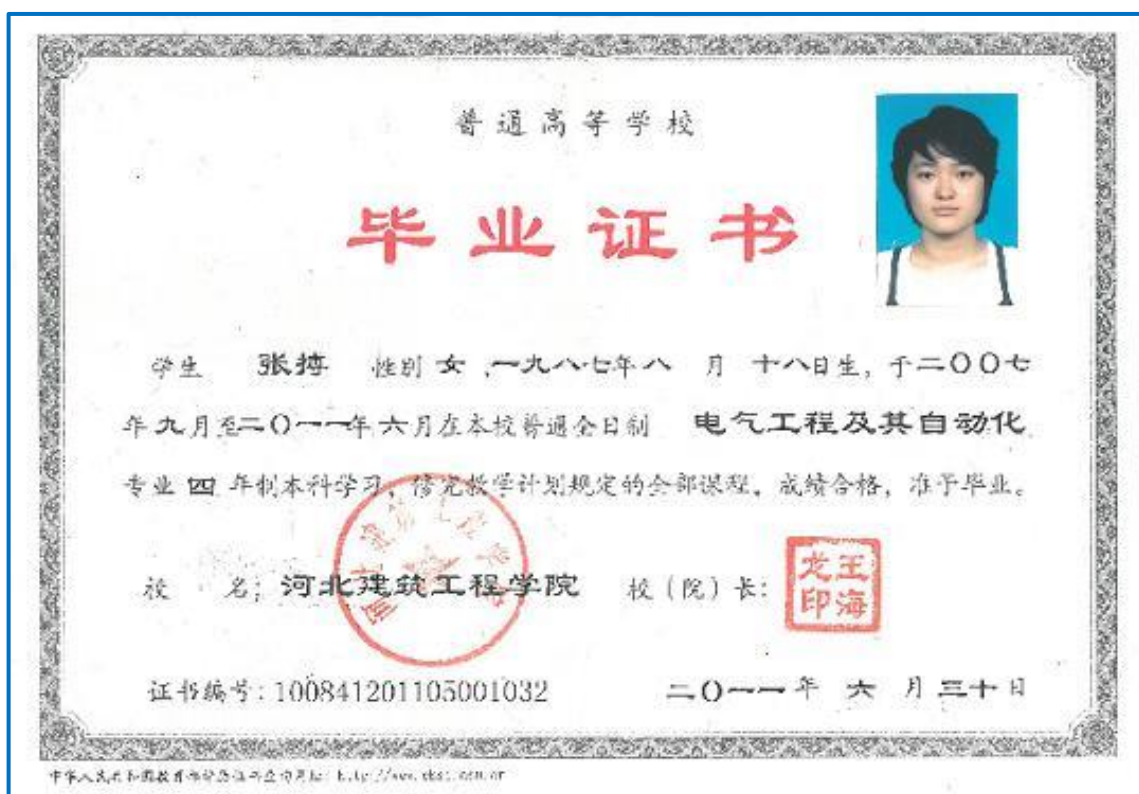 普通高等学校
毕业证书
学生 张搏 性别 女 ,一九八七年八 月 十八日生, 于二〇〇七
年九月至二〇一一年六月在本校普通全日制 电气工程及其自动化
专业 四 年制本科学习, 修完教学计划规定的全部课程, 成绩合格, 准予毕业。
校 名: 河北建筑工程学院 校(院)长:
王海龙印
证书编号: 100841201105001032 二〇一一年 六 月 三十日
中华人民共和国教育部学历证书查询网址: